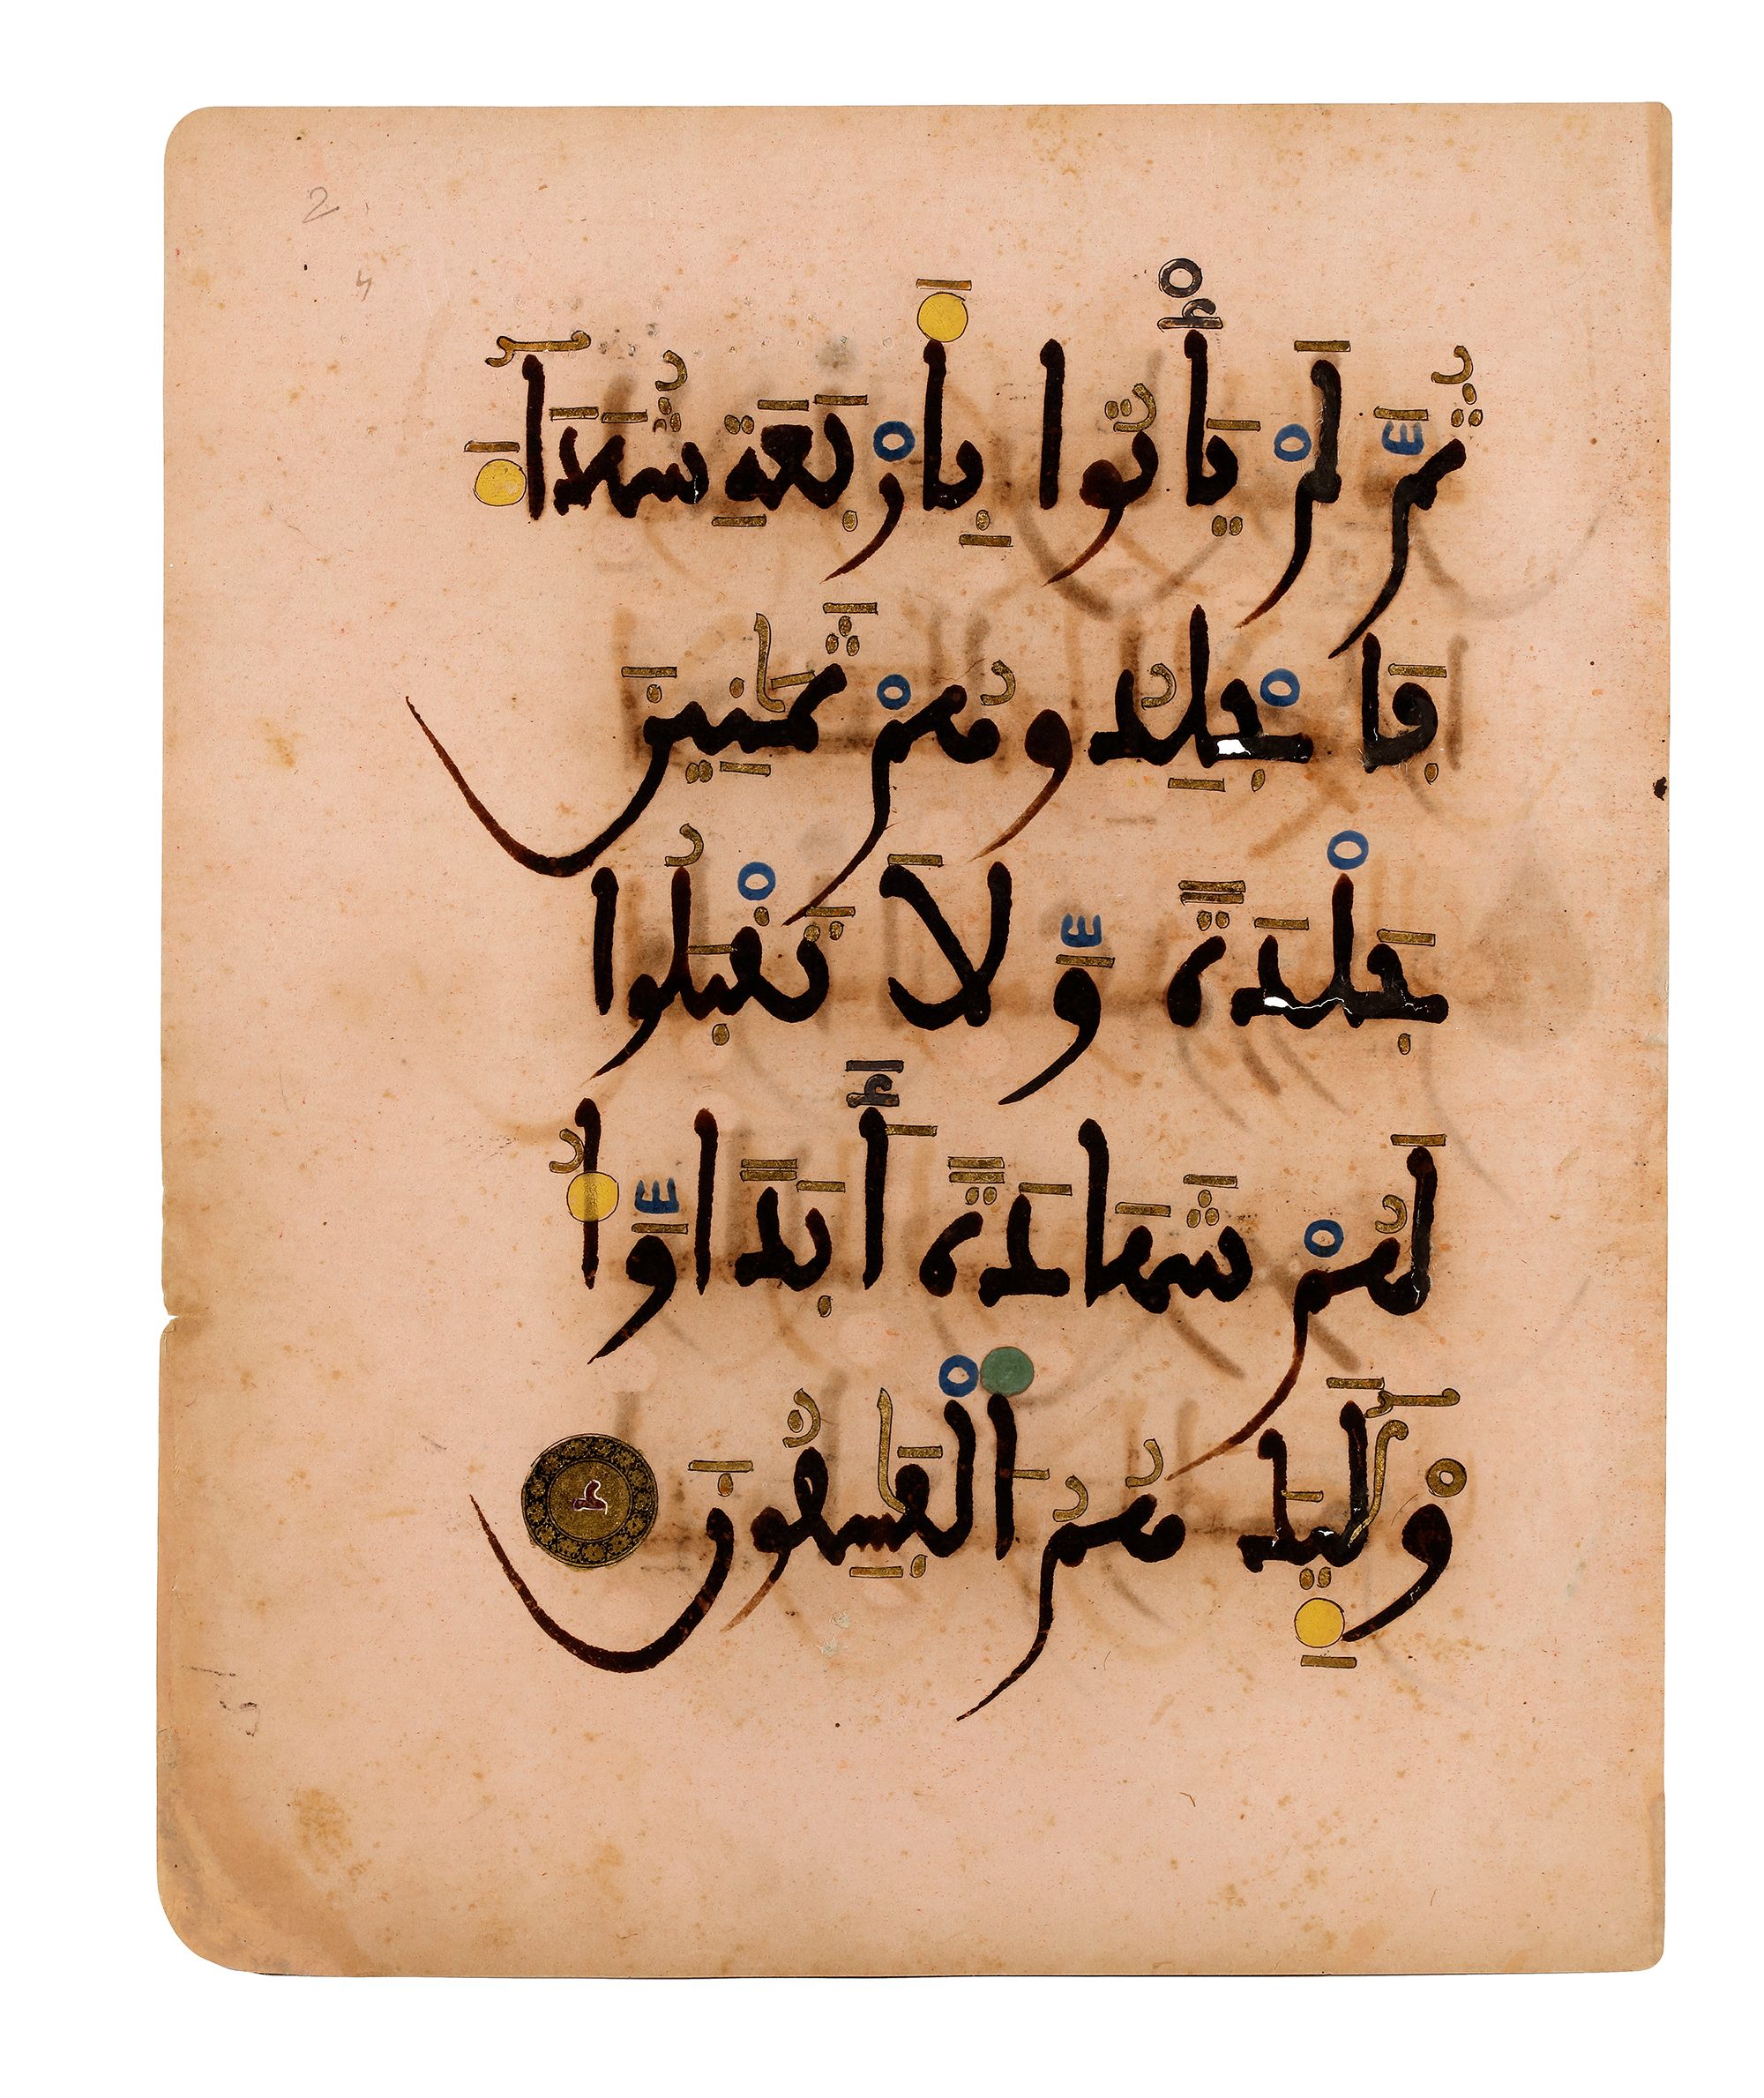 2
ثُمَّ لَمْ يَأْتُوا بِأَرْبَعَةِ شُهَدَآءَ
فَاجْلِدُوهُمْ ثَمَٰنِينَ
جَلْدَةً وَّلَا تَقْبَلُوا
لَهُمْ شَهَادَةً أَبَدًا وَّأُ
وْلَٰٓئِكَ هُمُ الْفَٰسِقُونَ